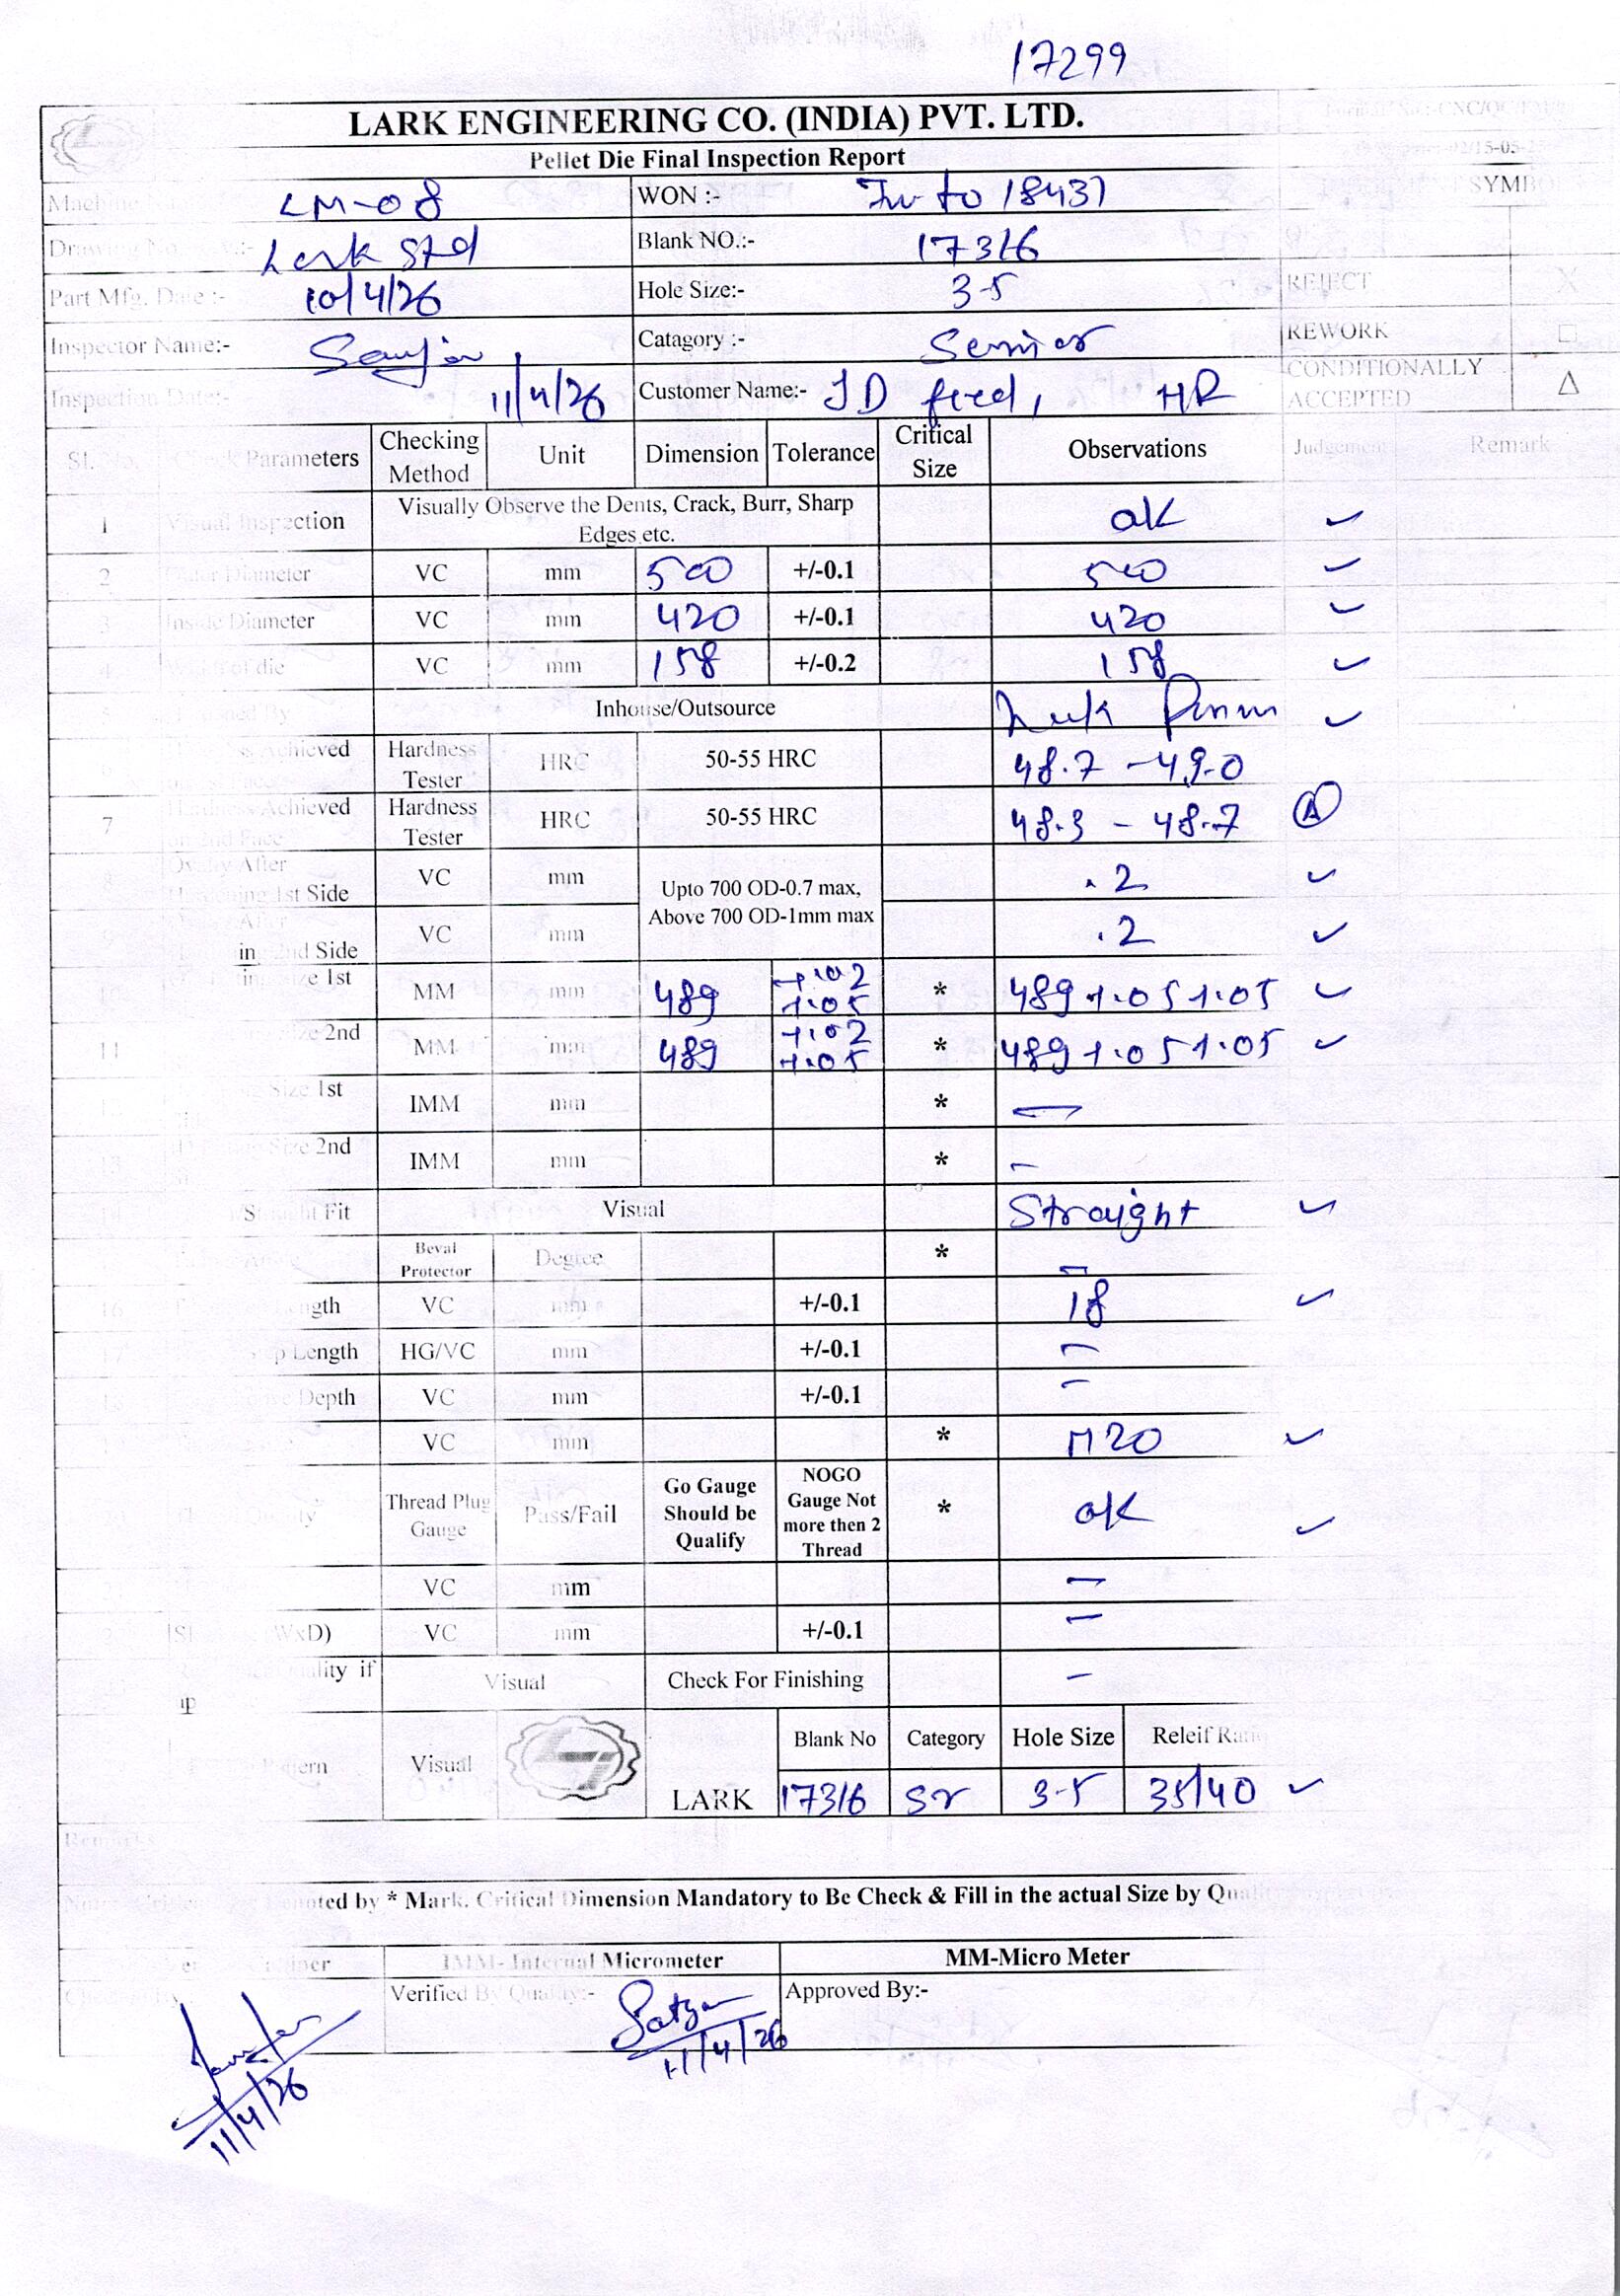 17299
LARK ENGINEERING CO. (INDIA) PVT. LTD.
Pellet Die Final Inspection Report
Machine LM-08 WON :- 18437 SYMBO
Drawing No. Lark Std Blank NO.:- 17316
Part Mfg. Date :- 10/4/26 Hole Size:- 3.5 REJECT X
Inspector Name:- Catagory :- Senior REWORK □
Inspection Date:- 11/4/26 Customer Name:- JD feed, HR CONDITIONALLY ACCEPTED Δ
Sl. No. Check Parameters Checking Method Unit Dimension Tolerance Critical Size Observations Judgement Remark
1 Visual Inspection Visually Observe the Dents, Crack, Burr, Sharp Edges etc. OK ✓
2 Outer Diameter VC mm 500 +/-0.1 500 ✓
3 Inside Diameter VC mm 420 +/-0.1 420 ✓
4 Width of die VC mm 158 +/-0.2 158 ✓
5 By Inhouse/Outsource ✓
6 Achieved Hardness Tester HRC 50-55 HRC 48.7 - 49.0
7 Hardness Achieved 2nd Face Hardness Tester HRC 50-55 HRC 48.3 - 48.7
8 After 1st Side VC mm Upto 700 OD-0.7 max, Above 700 OD-1mm max .2 ✓
9 After 2nd Side VC mm .2 ✓
10 Size 1st MM mm 489 +.02 +.05 * 489 +.05 +.05 ✓
11 Size 2nd MM mm 489 +.02 +.05 * 489 +.05 +.05 ✓
Size 1st IMM mm * —
13 Size 2nd IMM mm * –
14 /Straight Fit Visual Straight ✓
Beval Protector Degree * –
16 Length VC mm +/-0.1 18 ✓
17 Length HG/VC mm +/-0.1 –
18 Depth VC mm +/-0.1 –
VC mm * M20 ✓
Thread Plug Gauge Pass/Fail Go Gauge Should be Qualify NOGO Gauge Not more then 2 Thread * OK ✓
VC mm –
(WxD) VC mm +/-0.1 –
if Visual Check For Finishing –
Pattern Visual LARK Blank No Category Hole Size Releif Ratio
17316 Sr 3.5 35/40 ✓
Remarks
Denoted by * Mark. Critical Dimension Mandatory to Be Check & Fill in the actual Size by Quality
IMM- Internal Micrometer MM-Micro Meter
Verified By Quality:- Approved By:-
11/4/26
11/4/26